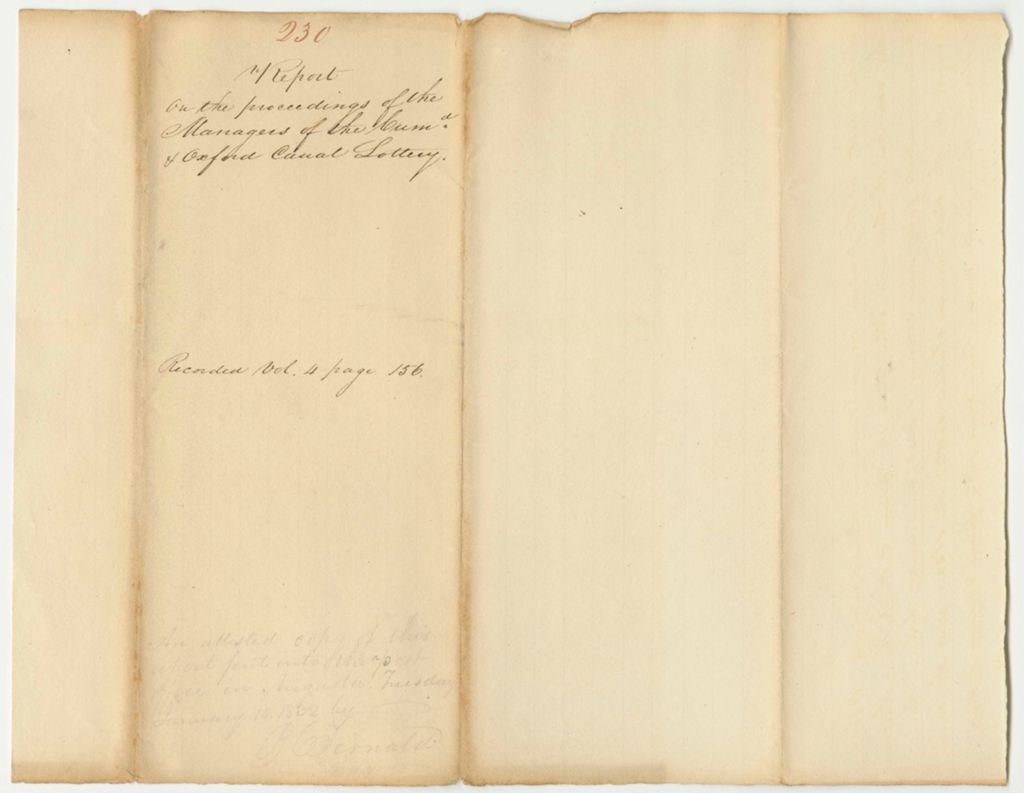 230
Report
On the proceedings of the
Managers of the Cumd.
& Oxford Canal Lottery.
Recorded Vol. 4 page 156.
An attested copy of this
report put into the post
office in Augusta Tuesday
January 1832 by